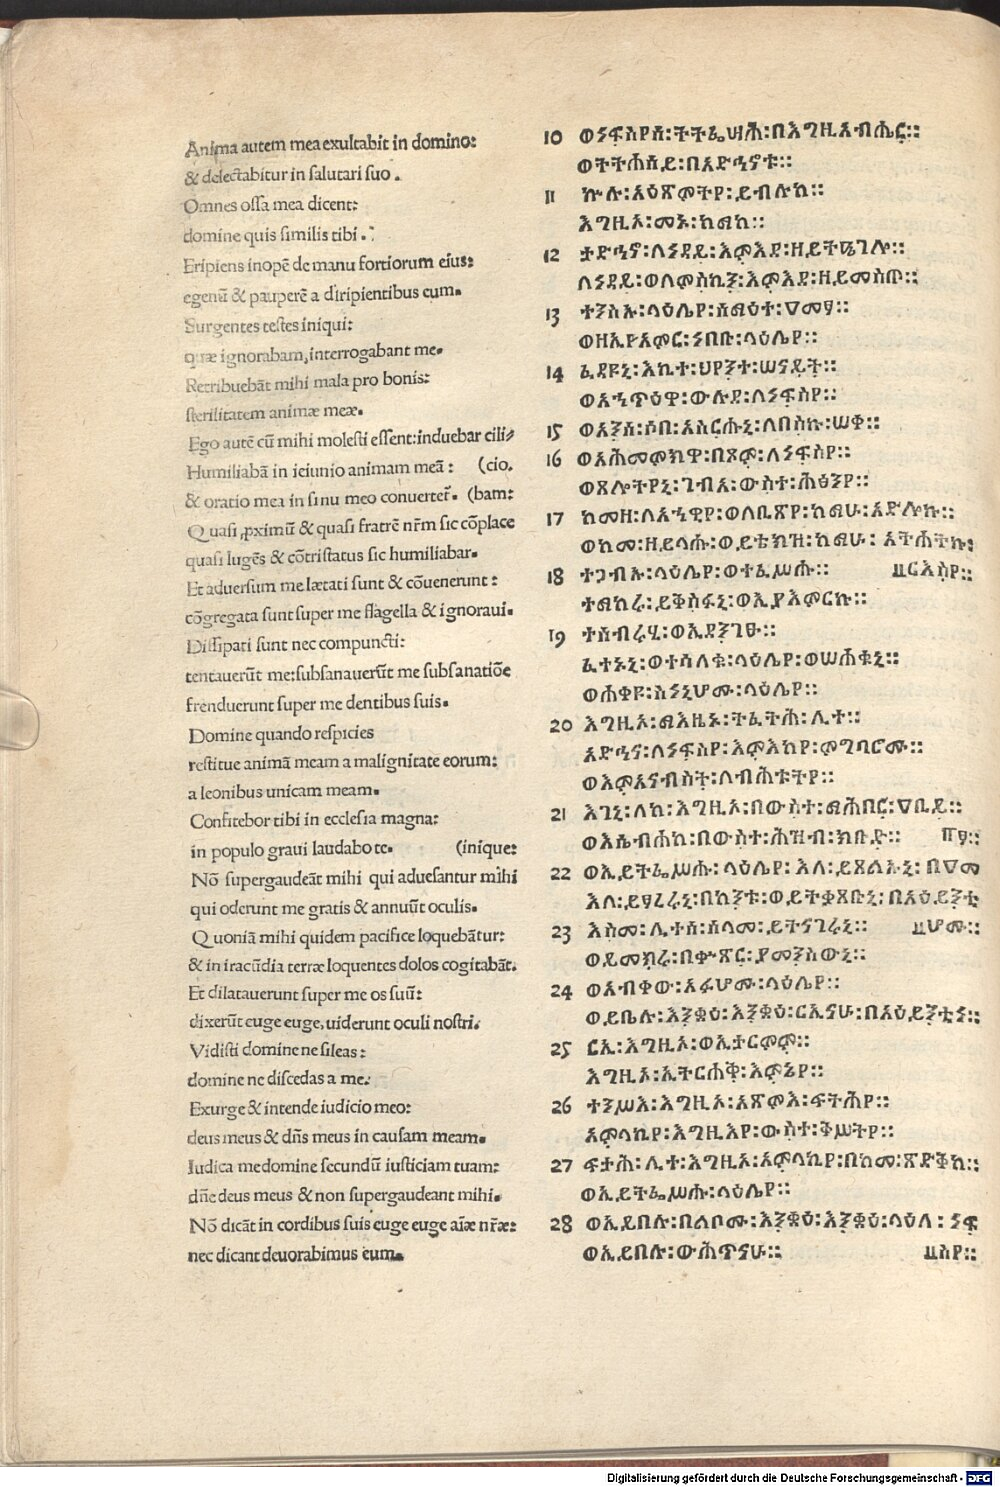 Anima autem mea exultabit in domino:
& delectabitur in salutari suo .
Omnes ossa mea dicent:
domine quis similis tibi .
Eripiens inopē de manu fortiorum eius:
egenū & pauperē a diripientibus eum.
Surgentes testes iniqui:
quæ ignorabam, interrogabant me.
Retribuebāt mihi mala pro bonis:
sterilitatem animæ meæ.
Ego autē cū mihi molesti essent: induebar cili
Humiliabā in ieiunio animam meā : (cio.
& oratio mea in sinu meo conuertet. (bam:
Quasi pximū & quasi fratrē nr̄m sic cōplace
quasi lugēs & cōtristatus sic humiliabar.
Et aduersum me lætati sunt & cōuenerunt :
cōgregata sunt super me flagella & ignoraui.
Dissipati sunt nec compuncti:
tentauerūt me: subsanauerūt me subsanatiōe
frenduerunt super me dentibus suis.
Domine quando respicies
restitue animā meam a malignitate eorum:
a leonibus unicam meam.
Confitebor tibi in ecclesia magna:
in populo graui laudabo te. (inique:
Nō supergaudeāt mihi qui aduesantur mihi
qui oderunt me gratis & annuūt oculis.
Quoniā mihi quidem pacifice loquebātur:
& in iracūdia terræ loquentes dolos cogitabāt.
Et dilatauerunt super me os suū:
dixerūt euge euge, uiderunt oculi nostri.
Vidisti domine ne sileas :
domine ne discedas a me.
Exurge & intende iudicio meo:
deus meus & dn̄s meus in causam meam.
Iudica me domine secundū iusticiam tuam:
dn̄e deus meus & non supergaudeant mihi.
Nō dicāt in cordibus suis euge euge aīæ nr̄æ:
nec dicant deuorabimus eum.
10 ወነፍስየሰ፡ትትፌሣሕ፡በእግዚአብሔር፡፡
ወትትሐሠይ፡በአድኅኖቱ፡፡
11 ኵሉ፡አዕጽምትየ፡ይብሉከ፡፡
እግዚኦ፡መኑ፡ከማከ፡፡
12 ታድኅኖ፡ለነዳይ፡እምእደ፡ዘይትዔገሎ፡፡
ለነዳይ፡ወለምስኪን፡እምእደ፡ዘይመስጦ፡፡
13 ተንስኡ፡ላዕሌየ፡ሰማዕተ፡ዐመፃ፡፡
ወዘኢየአምር፡ነበቡ፡ላዕሌየ፡፡
14 ፈደዩኒ፡እኪተ፡ህየንተ፡ሠናይት፡፡
ወአኅጥዕዋ፡ውሉደ፡ለነፍስየ፡፡
15 ወአንሰ፡ሶበ፡አስርሑኒ፡ለበስኩ፡ሠቀ፡፡
16 ወአሕመምክዋ፡በጾም፡ለነፍስየ፡፡
ወጸሎትየኒ፡ገብአ፡ውስተ፡ሕፅንየ፡፡
17 ከመዘ፡ለእኅዊየ፡ወለቢጽየ፡ከማሁ፡አድሎኩ፡፡
ወከመ፡ዘይላሑ፡ወይቴክዝ፡ከማሁ፡አትሐትኩ፡
18 ተጋብኡ፡ላዕሌየ፡ወተፈሥሑ፡፡ ርእስየ፡፡
ተማከሩ፡ይቅስፉኒ፡ወኢያእመርኩ፡፡
19 ተሰብሩሂ፡ወኢደንገፁ፡፡
ፈተኑኒ፡ወተሳለቁ፡ላዕሌየ፡ወሠሐቁኒ፡፡
ወሐቀዩ፡ስነኒሆሙ፡ላዕሌየ፡፡
20 እግዚኦ፡ማእዜኑ፡ትፈትሕ፡ሊተ፡፡
አድኅና፡ለነፍስየ፡እምእከየ፡ምግባሮሙ፡፡
ወእምአናብስት፡ለብሕቱትየ፡፡
21 እገኒ፡ለከ፡እግዚኦ፡በውስተ፡ማሕበር፡ዐቢይ፡፡
ወእሴብሐከ፡በውስተ፡ሕዝብ፡ክቡድ፡፡ ፃ፡፡
22 ወኢይትፌሥሑ፡ላዕሌየ፡እለ፡ይጸልኡኒ፡በዐመ
እለ፡ይፃረሩኒ፡በከንቱ፡ወይትቃጸቡኒ፡በአዕይንቲ
23 እስመ፡ሊተሰ፡ሰላመ፡ይትናገሩኒ፡፡ ሆሙ፡፡
ወይመክሩ፡በቍጽር፡ያመንስውኒ፡፡
24 ወአብቀው፡አፉሆሙ፡ላዕሌየ፡፡
ወይቤሉ፡እንቋዕ፡እንቋዕ፡ርኢናሁ፡በአዕይንቲነ፡፡
25 ርኢ፡እግዚኦ፡ወኢታርምም፡፡
እግዚኦ፡ኢትርሐቅ፡እምኔየ፡፡
26 ተንሥእ፡እግዚኦ፡አጽምእ፡ፍትሕየ፡፡
አምላኪየ፡እግዚእየ፡ውስተ፡ቅሥትየ፡፡
27 ፍታሕ፡ሊተ፡እግዚኦ፡አምላኪየ፡በከመ፡ጽድቅከ፡፡
ወኢይትፌሥሑ፡ላዕሌየ፡፡
28 ወኢይበሉ፡በልቦሙ፡እንቋዕ፡እንቋዕ፡ላዕለ፡ነፍ
ወኢይበሉ፡ውሕጥናሁ፡፡ ስየ፡፡
Digitalisierung gefördert durch die Deutsche Forschungsgemeinschaft - DFG